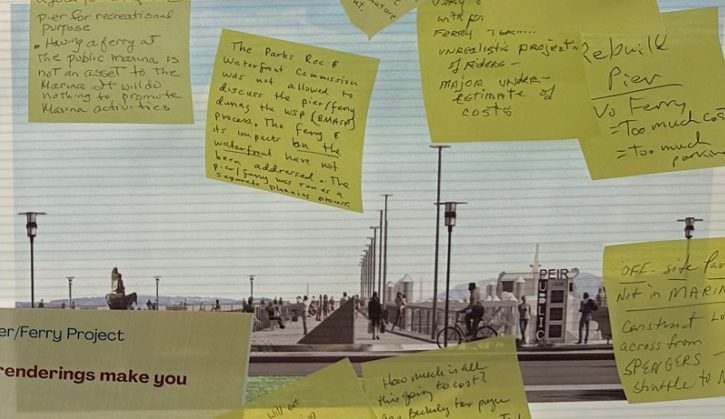 pier for recreational
purpose
• Having a ferry at
the public marina is
not an asset to the
Marina. It will do
nothing to promote
Marina activities
The Parks Rec &
Waterfront Commission
was not allowed to
discuss the pier/ferry
during the WSP (BMASP)
process. The ferry &
its impacts on the
waterfront have not
been addressed. The
pier/ferry was run as a
separate planning process.
very
with
FERRY
UNREALISTIC PROJECTN
of RIDERS-
MAJOR UNDER-
ESTIMATE of
COSTS
Rebuild
Pier
No Ferry
=Too much cos
=Too much
parkin
PEIR
PUBLIC
OFF-site Par
Not in MARIN
Construct Lo
across from
SPENGERS
shuttle to
er/Ferry Project
renderings make you
will eat
How much is all
this going to cost?
Berkeley tax payer